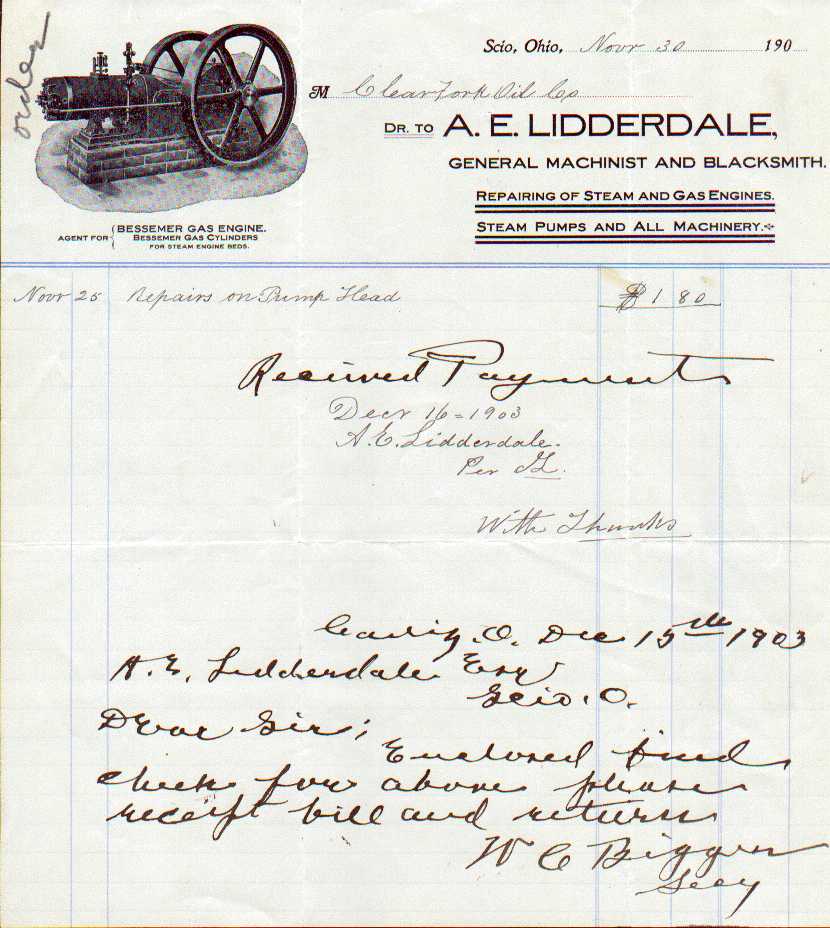 order
Scio, Ohio, Novr 30 190
M Clear Fork Oil Co
DR. TO A. E. LIDDERDALE,
GENERAL MACHINIST AND BLACKSMITH.
REPAIRING OF STEAM AND GAS ENGINES.
STEAM PUMPS AND ALL MACHINERY.
AGENT FOR { BESSEMER GAS ENGINE.
BESSEMER GAS CYLINDERS
FOR STEAM ENGINE BEDS.
Novr 25 Repairs on Pump Head $ 1 80
Received Payment
Decr 16 = 1903
A. E. Lidderdale.
Per
With Thanks
O. Dec 15th 1903
A. E. Lidderdale Esq
Scio. O.
Dear Sir;
Enclosed find
check for above please
receipt bill and return
W C
Secy